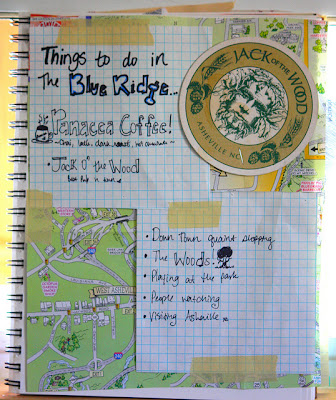 Things to do in
The Blue Ridge...
JACK OF THE WOOD
ASHEVILLE NC
Panacea Coffee!
~ Chai, latte, dark roast, hot chocolate ~
Jack O' the Wood
Best Pub in town
• Down Town quaint shopping
• The Woods!
• Playing at the park
• People watching
• Visiting Asheville
WEST ASHEVILLE
240